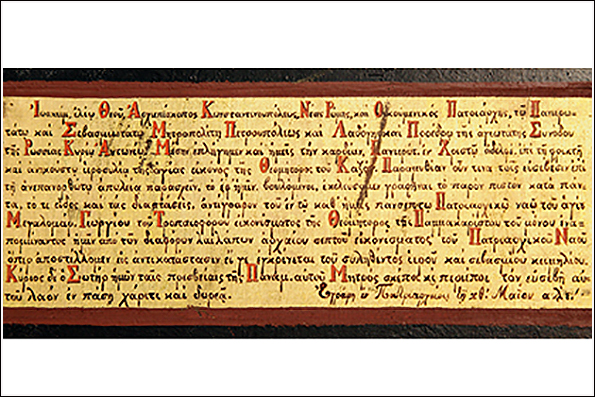 Ἰωακείμ, ἐλέῳ Θεοῦ, Ἀρχιεπίσκοπος Κωνσταντινουπόλεως, Νέας Ῥώμης, καὶ Οἰκουμενικὸς Πατριάρχης, τῷ Πανιερω-
τάτῳ καὶ Σεβασμιωτάτῳ Μητροπολίτῃ Πετρουπόλεως καὶ Λαδόγης καὶ Προέδρῳ τῆς ἁγιωτάτης Συνόδου
τῆς Ῥωσσίας Κυρίῳ Ἀντωνίῳ. ἐπλήγημεν καὶ ἡμεῖς τὴν καρδίαν, Πανιερώτ. ἐν Χριστῷ ἀδελφέ, ἐπὶ τῇ φρικτῇ
καὶ ἀνηκούστῳ ἱεροσυλίᾳ τῆς ἁγίας εἰκόνος τῆς Θεομήτορος τοῦ Καζάν. Παραμυθίαν οὖν τινα τοῖς εὐσεβέσιν ἐπὶ
τῇ ἀνεπανορθώτῳ ἀπωλείᾳ παρασχεῖν, τὸ ἐφ' ἡμῖν, βουλόμενοι, ἐκελεύσαμεν γραφῆναι τὸ παρὸν πιστὸν κατὰ πάν-
τα, τό τε εἶδος καὶ τὰς διαστάσεις, ἀντίγραφον τοῦ ἐν τῷ καθ' ἡμᾶς πανσέπτῳ Πατριαρχικῷ ναῷ τοῦ ἁγίου
Μεγαλομάρ. Γεωργίου τοῦ Τροπαιοφόρου εἰκονίσματος τῆς Θεομήτορος τῆς Παμμακαρίστου τοῦ μόνου ἐνα-
πομείναντος ἡμῖν ἀπὸ τῶν διαφόρων λαιλάπων ἀρχαίου σεπτοῦ εἰκονίσματος τοῦ Πατριαρχικοῦ Ναοῦ
ὅπερ ἀποστέλλομεν εἰς ἀντικατάστασιν εἴ γε ἐγκρίνεται τοῦ συληθέντος ἱεροῦ καὶ σεβασμίου κειμηλίου.
Κύριος δὲ ὁ Σωτὴρ ἡμῶν ταῖς πρεσβείαις τῆς Παναμ. αὐτοῦ Μητρὸς σκέποι κ̀ περιέποι τὸν εὐσεβῆ αὐ-
τοῦ λαὸν ἐν πάσῃ χάριτι καὶ δωρεᾷ. Ἐγράφη ἐν Πατριαρχείοις τῇ κθ' Μαΐου